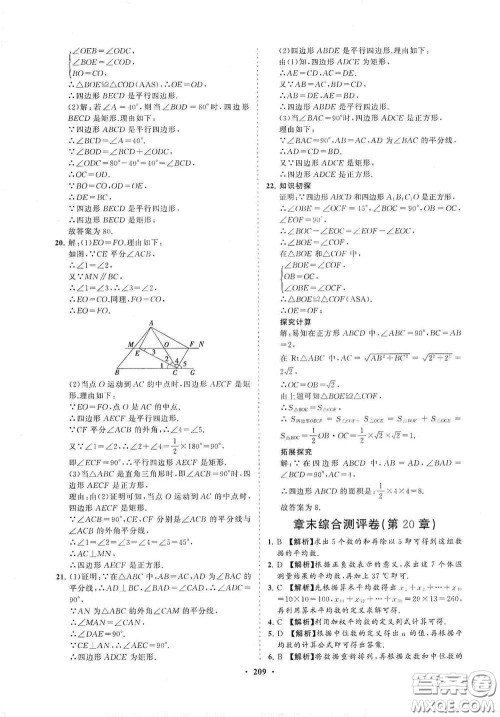 ∠OEB=∠ODC,
∠BOE=∠COD,
BO=CO,
∴△BOE≌△COD(AAS),∴OE=OD,
∴四边形 BECD 是平行四边形.
(2)解:若∠A=40°,则当∠BOD=80°时,四边形
BECD 是矩形.理由如下:
∵四边形 ABCD 是平行四边形,
∴∠BCD=∠A=40°,
∵∠BOD=∠BCD+∠ODC,
∴∠ODC=80°-40°=40°=∠BCD,
∴OC=OD,
∵BO=CO,OD=OE,
∴DE=BC,
∵四边形 BECD 是平行四边形,
∴四边形 BECD 是矩形.
故答案为 80.
20. 解:(1)EO=FO.理由如下:
如图,∵CE 平分∠ACB,
∴∠1=∠2,
又∵MN∥BC,
∴∠1=∠3,∴∠2=∠3,
∴EO=CO.同理,FO=CO,
∴EO=FO.
A
M E O F N
3
B C G
(2)当点 O 运动到 AC 的中点时,四边形 AECF 是
矩形.理由如下:
∵EO=FO,点 O 是 AC 的中点,
∴四边形 AECF 是平行四边形.
∵CF 平分∠ACB 的外角,∴∠4=∠5.
又∵∠1=∠2,∴∠2+∠4=1/2×180°=90°.
即∠ECF=90°,∴平行四边形 AECF 是矩形.
(3)当△ABC 是直角三角形时,即∠ACB=90°时,
四边形 AECF 是正方形.
理由:由(2)证明可知,当点 O 运动到 AC 的中点时,
四边形 AECF 是矩形,
∵∠ACB=90°,CE,CF 分别是∠ACB 的平分线与
∠ACB 的外角的平分线,
∴∠1=∠2=∠4=∠5=45°,
∴AC⊥MN,
∴四边形 AECF 是正方形.
21. (1)证明:∵在△ABC 中,AB=AC,AD 为∠BAC 的
平分线,∴AD⊥BC,∠BAD=∠CAD,
∴∠ADC=90°,
∵AN 为△ABC 的外角∠CAM 的平分线,
∴∠MAN=∠CAN,
∴∠DAE=90°,
∵CE⊥AN,∴∠AEC=90°,
∴四边形 ADCE 为矩形.
(2)四边形 ABDE 是平行四边形.理由如下:
由(1)知,四边形 ADCE 为矩形,
则 AE=CD,AC=DE.
又∵AB=AC,BD=CD,
∴AB=DE,AE=BD,
∴四边形 ABDE 是平行四边形.
(3)当∠BAC=90°时,四边形 ADCE 是正方形.
理由:∵∠BAC=90°,AB=AC,AD 为∠BAC 的平分线,
∴AD=CD=BD,
又∵四边形 ADCE 是矩形,
∴四边形 ADCE 为正方形.
22. 知识初探
证明:∵四边形 ABCD 和 A₁B₁C₁O 是正方形,
∴∠OBE=∠OCF=45°,OB=OC,∠BOC=
∠EOF=90°,
∴∠BOE=∠COF=90°-∠COE,
∠OBE=∠OCF,
OB=OC,
∠BOE=∠COF,
∴△BOE≌△COF(ASA).
探究计算
解:易知在正方形 ABCD 中,∠ABC=90°,BC=AB
=2,
在 Rt△ABC 中,AC=√(AB²+BC²)=√(2²+2²)=
2√2,
∴OC=OB=√2,
由上题可知△BOE≌△COF,
∴S△BOE=S△COF,
∴S四边形OECF=S△COE+S△COF=S△COE+S△BOE=
S△BOC=1/2OB·OC=1/2×√2×√2=1.
拓展探究
解:∵在四边形 ABCD 中,AB=AD,∠BAD=
∠BCD=90°,
∴四边形的面积=1/2×4×4=8,
故答案为 8.
章末综合测评卷(第 20 章)
1. B 【解析】求出 5 个数的和再除以 5 即可得到这组数
据的平均数.
2. D 【解析】根据正负数表示的意义,先求出这 7 个体温
测量结果的平均数,再加上 37 ℃即可.
3. C 【解析】先根据算术平均数求出 x₁+x₂+⋯+x₁₀
=10×10=100,x₁₁+x₁₂+⋯+x₃₀=20×13=260,
再利用算术平均数的定义求解可得.
4. C 【解析】利用加权平均数的定义列式计算可得.
5. B 【解析】根据中位数的定义得出 a 的值,再根据平均
数的计算公式即可得出答案.
6. B 【解析】将数据重新排列,再根据众数和中位数和中
· 209 ·